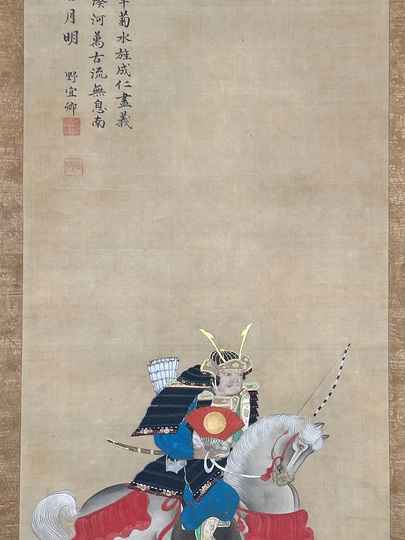 菊水旌成仁盡義
湊河萬古流無息南
月明
野宜卿